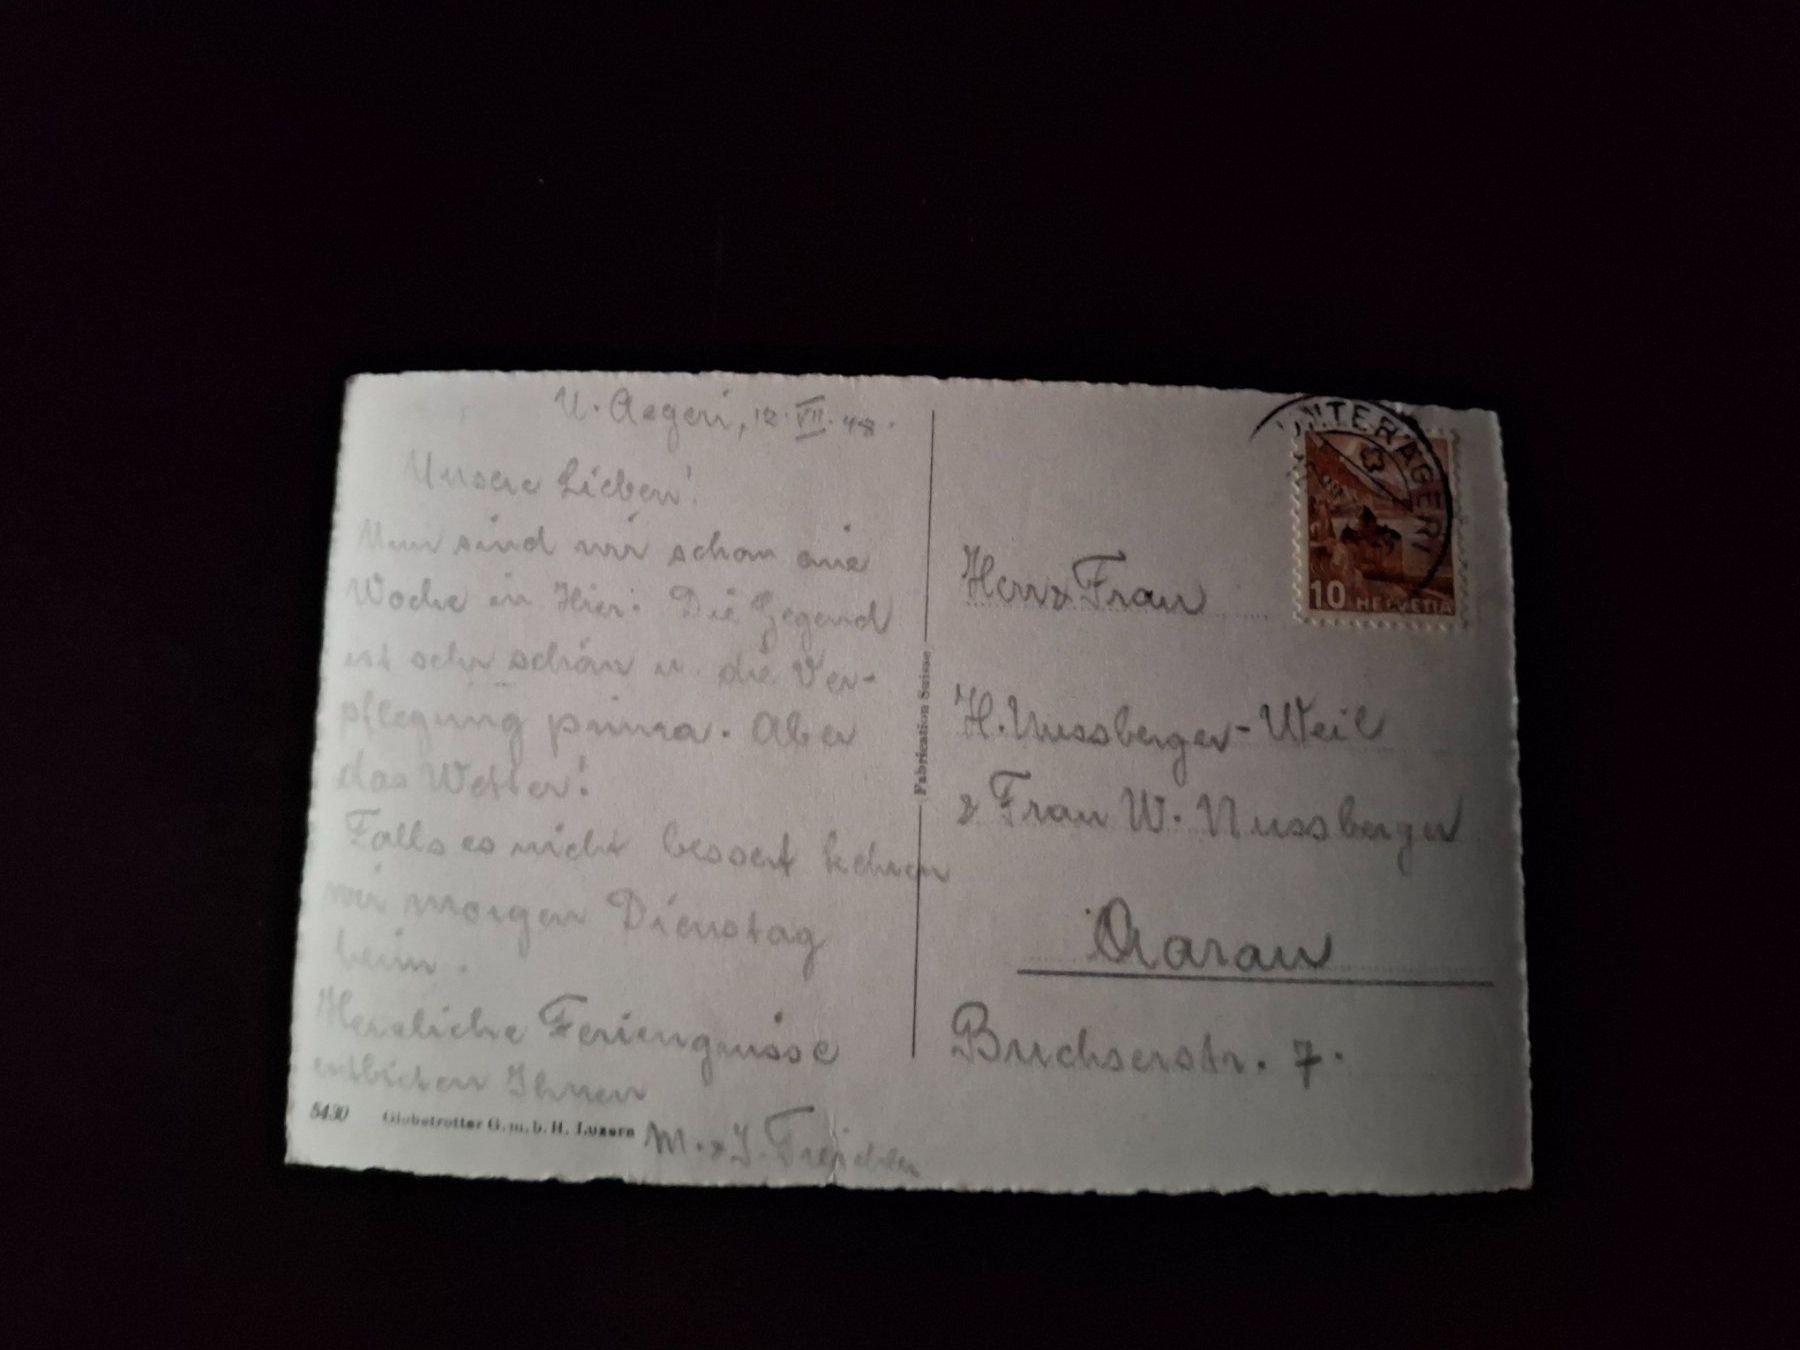 U. Aegeri, 12. VII. 48.
Unsere Lieben!
Nun sind wir schon eine
Woche in hier: Die Gegend
ist sehr schön u. die Ver-
pflegung prima. Aber
das Wetter!
Falls es nicht bessert kehren
wir morgen Dienstag
heim.
Herzliche Feriengrüsse
entbieten Ihnen
M. & J.
5430 Globetrotter G.m.b.H. Luzern
Fabrication Suisse
UNTERÄGERI
10 HELVETIA
Herr & Frau
H. Nussberger-Weil
& Frau W. Nussberger
Aarau
Buchserstr. 7.